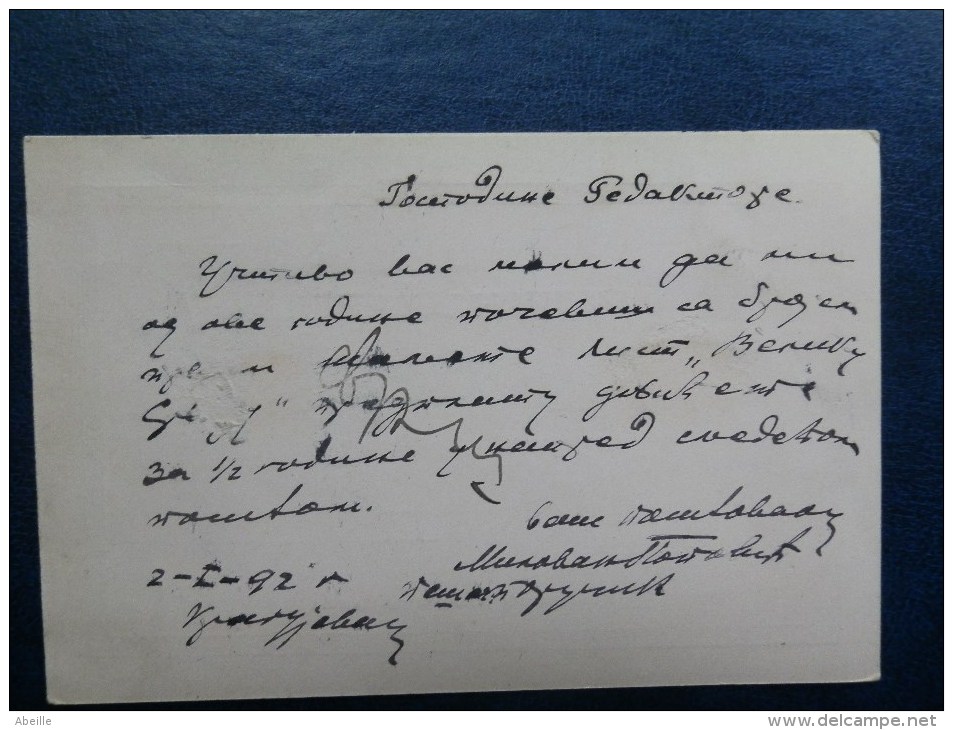 Господине Редакторе
Учтиво вас молим да ми
од ове године почевши са бројем
лист „Велику
Србију" предплату
за 1/2 године унапред следећом
поштом.
ваш поштовалац
Милован Поповић
2-I-92 г
Крагујевац
Abeille
www.delcampe.net